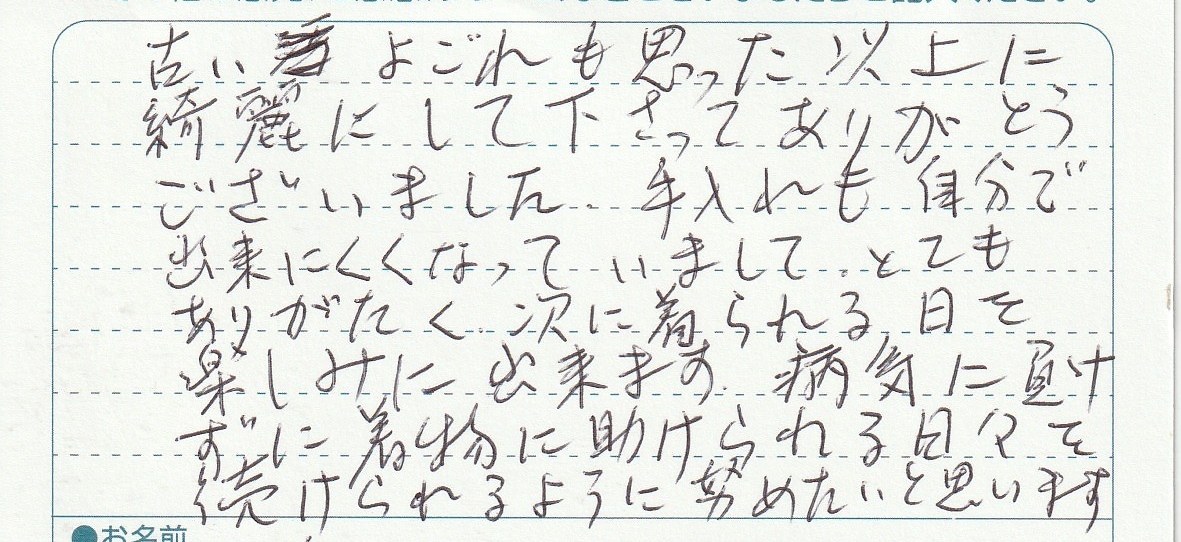 古い よごれも思った以上に
綺麗にして下さってありがとう
ございました。手入れも自分で
出来にくくなっていまして、とても
ありがたく、次に着られる日を
楽しみに出来ます。病気に負け
ずに着物に助けられる日々を
続けられるように努めたいと思います
●お名前